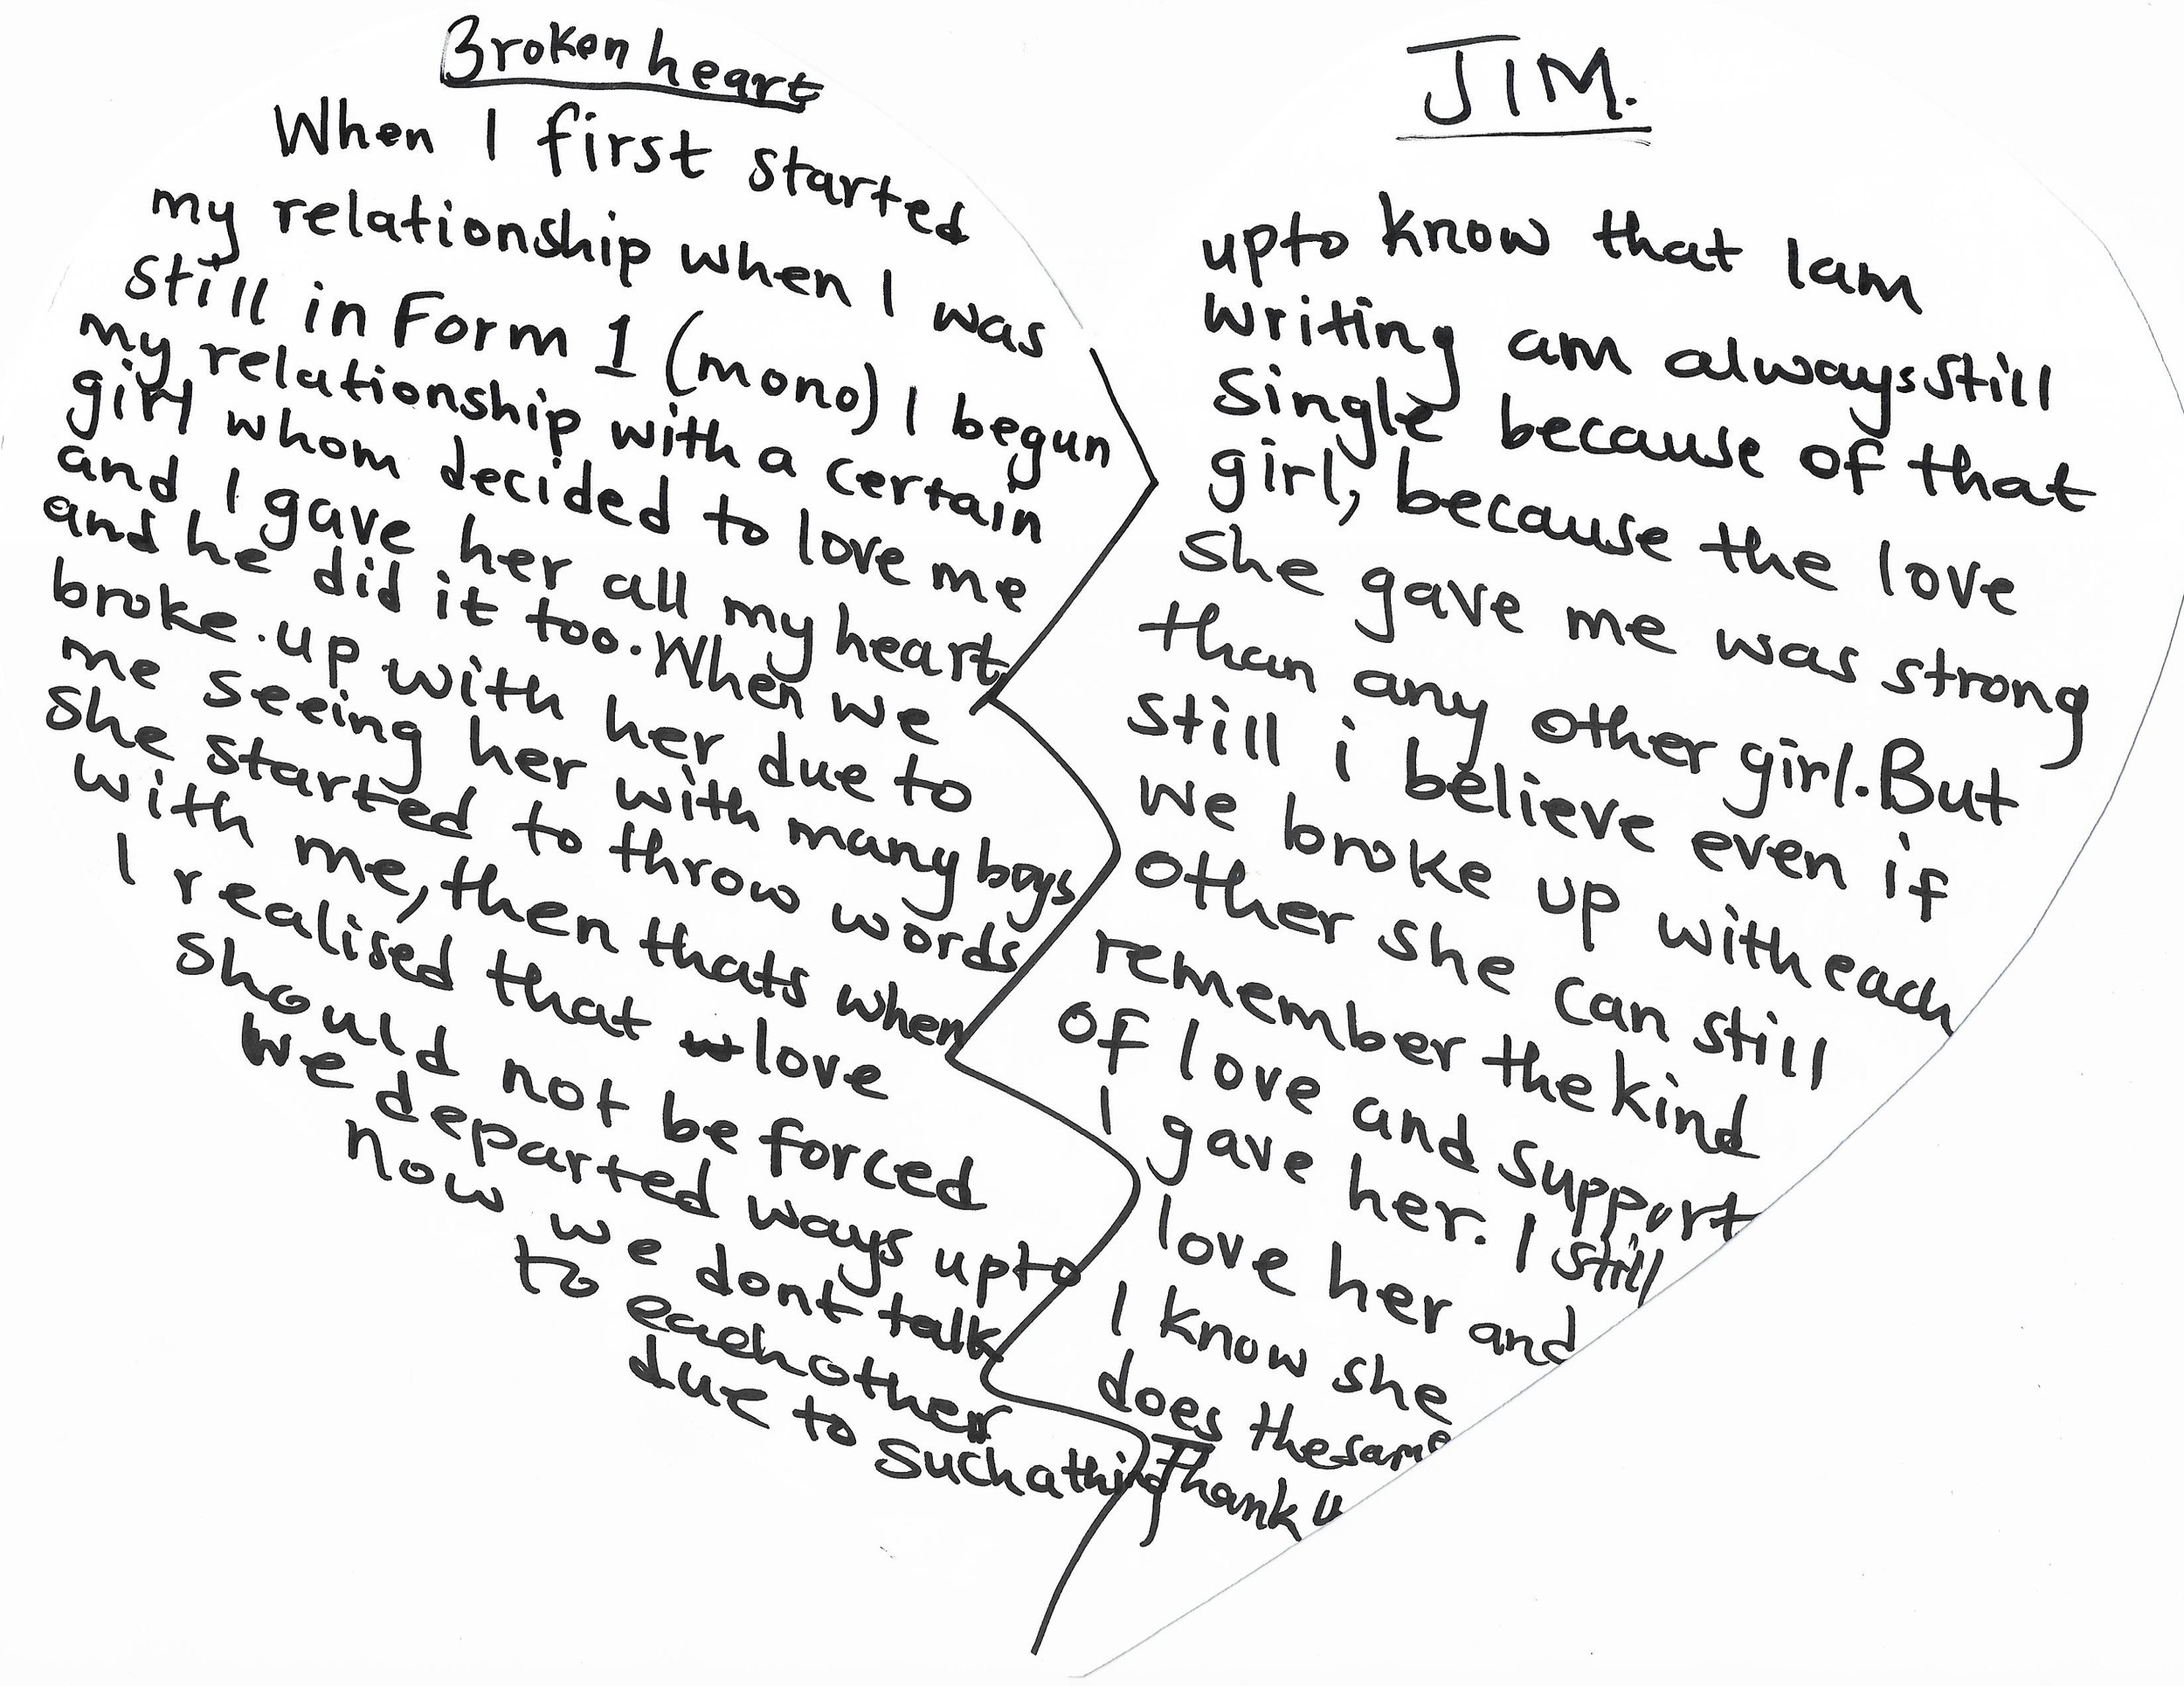 Broken heart
When I first started
my relationship when I was
still in Form 1 (mono) I begun
my relationship with a certain
girl whom decided to love me
and I gave her all my heart
and he did it too. When we
broke up with her due to
me seeing her with many boys
She started to throw words
with me, then thats when
I realised that love
should not be forced
We departed ways upto
now we dont talk
to each other
due to such a thing
JIM.
upto know that I am
writing am always still
single because of that
girl, because the love
She gave me was strong
than any other girl. But
still i believe even if
we broke up with each
other she can still
remember the kind
of love and support
I gave her. I still
love her and
I know she
does the same
Thank U